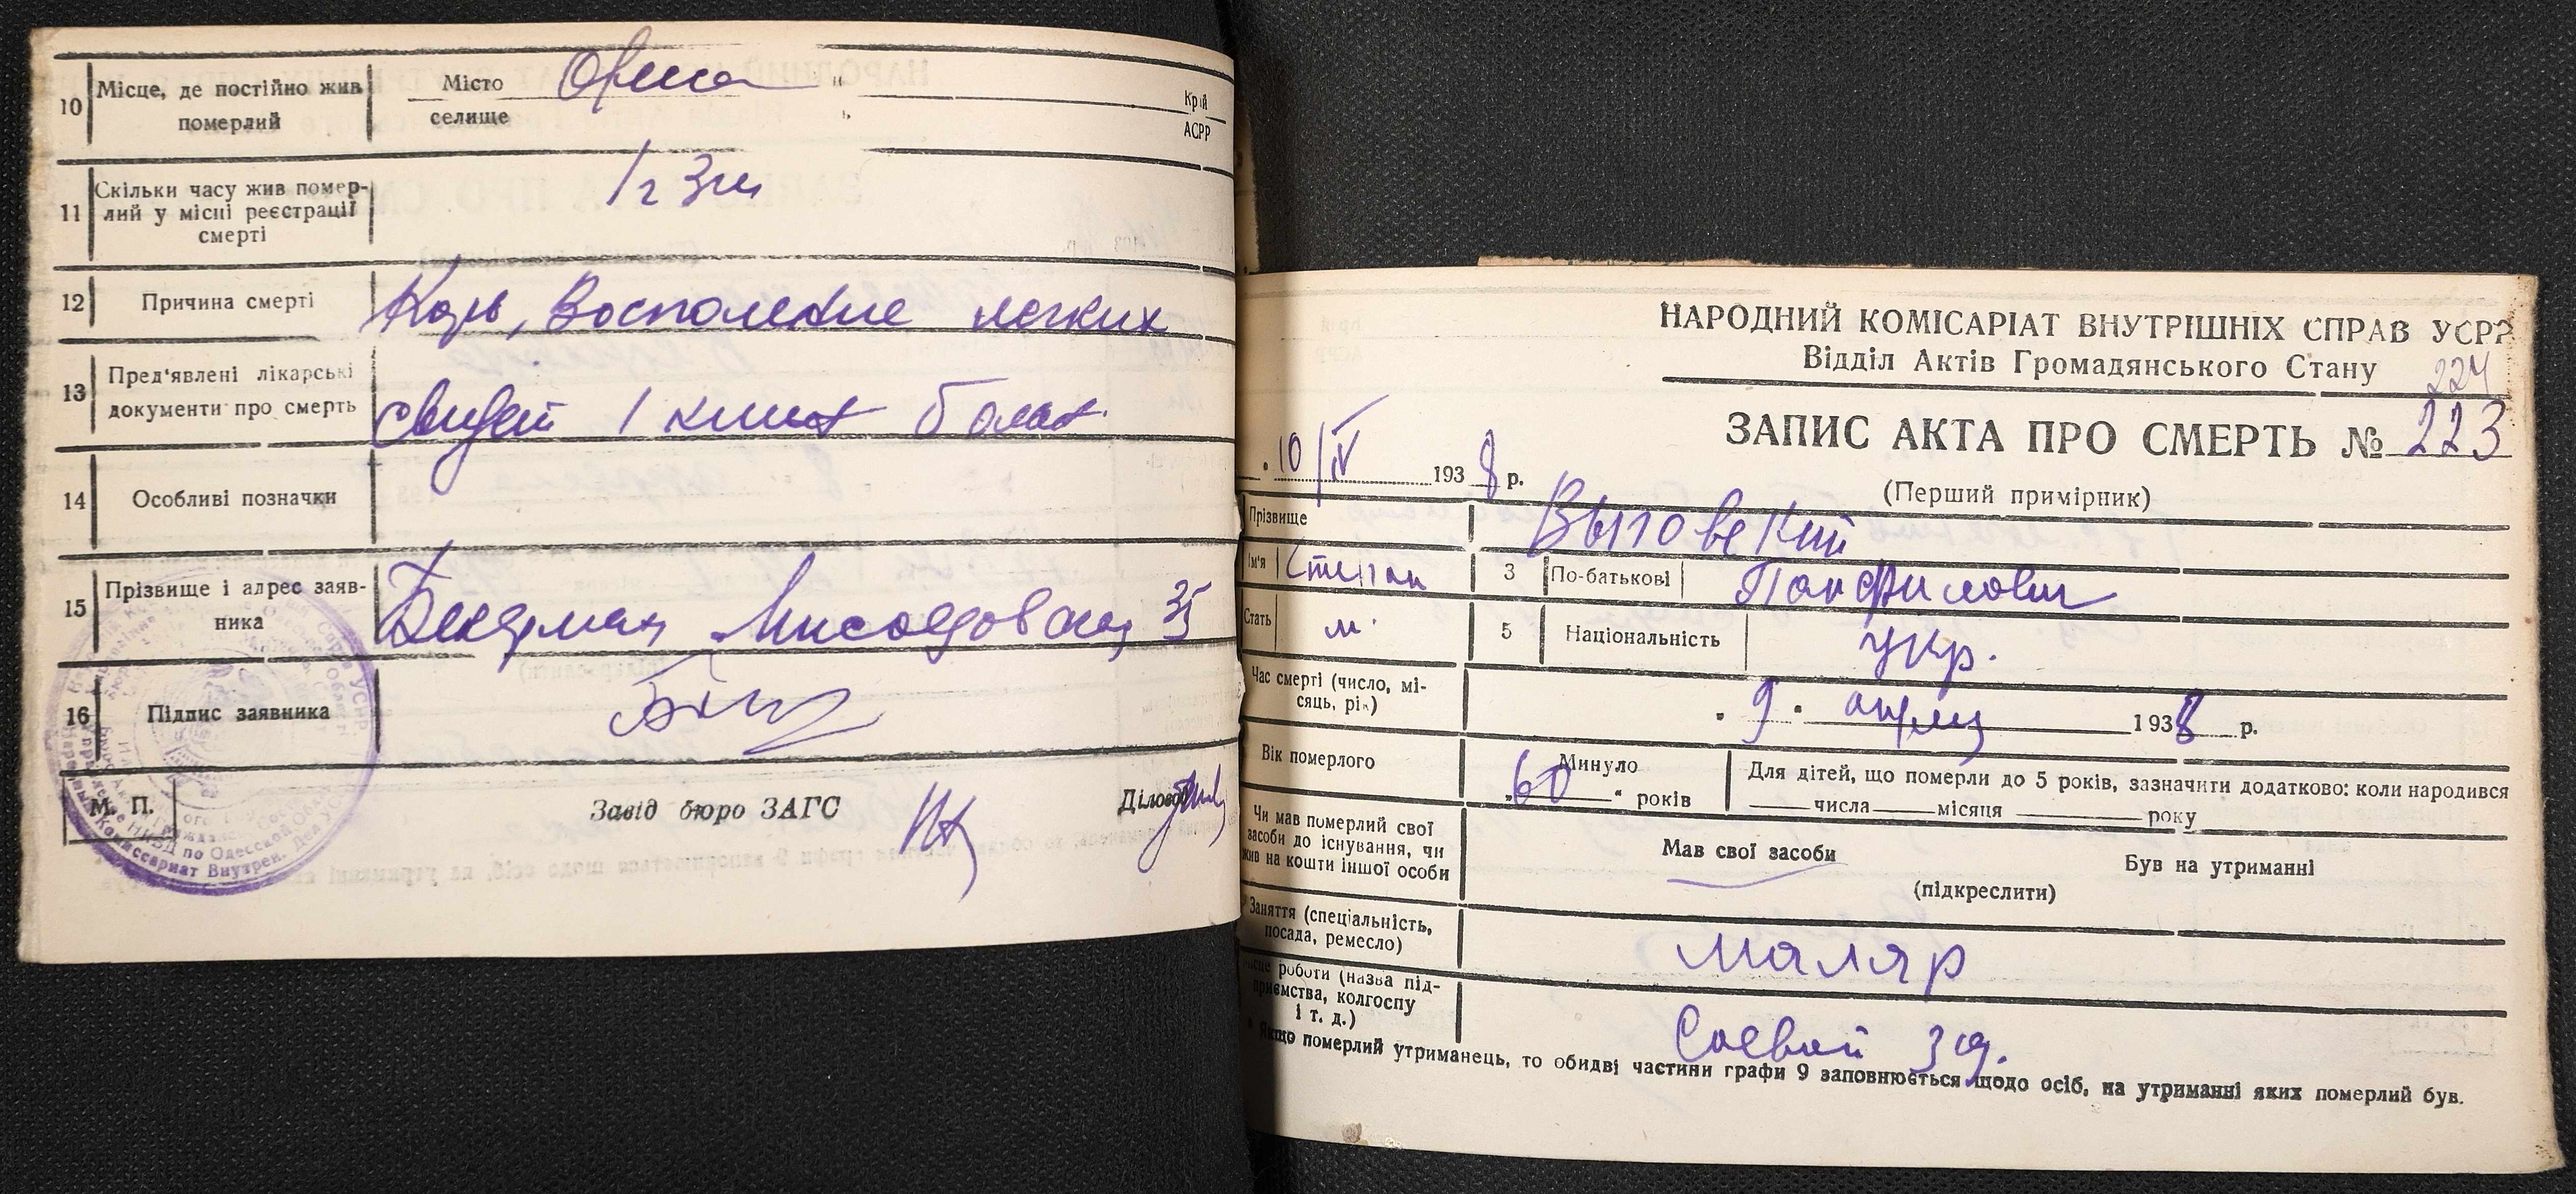 10 Місце, де постійно жив померлий
Місто Одесса
селище
Край
АСРР
11 Скільки часу жив помер-
лий у місці реєстрації
смерті
1 г 3 м
12 Причина смерті Корь, Воспаление легких
13 Пред'явлені лікарські
документи про смерть
свидет 1 клин больн.
14 Особливі позначки
15 Прізвище і адрес заяв-
ника
Мясоедовская 35
16 Підпис заявника
М. П. Завід бюро ЗАГС Діловод
НАРОДНИЙ КОМІСАРІАТ ВНУТРІШНІХ СПРАВ УСРР
Відділ Актів Громадянського Стану
224
ЗАПИС АКТА ПРО СМЕРТЬ № 223
10/IV 1938 р.
(Перший примірник)
Прізвище Выговский
Ім'я Степан 3 По-батькові Панфилович
Стать м. 5 Національність укр.
Час смерті (число, мі-
сяць, рік)
„ 9 " апреля 1938 р.
Вік померлого
Минуло
„ 60 " років
Для дітей, що померли до 5 років, зазначити додатково: коли народився
числа місяця року
Чи мав померлий свої
засоби до існування, чи
жив на кошти іншої особи
Мав свої засоби Був на утриманні
(підкреслити)
Заняття (спеціальність,
посада, ремесло)
маляр
Місце роботи (назва під-
приємства, колгоспу
і т. д.)
Соевый зд.
* Якщо померлий утриманець, то обидві частини графи 9 заповнюється щодо осіб, на утриманні яких померлий був.